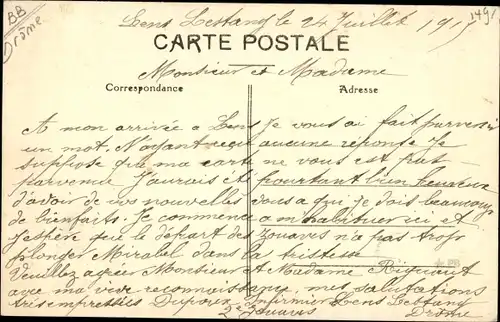 BB
Drôme
Lens Lestang le 24 Juillet 1917
1491
CARTE POSTALE
Monsieur et Madame
Correspondance
Adresse
A mon arrivée a Lens Je vous ai fait parvenir
un mot, N'ayant reçu aucune reponse Je
suppose que ma carte ne vous est pas
parvenue J'aurais été pourtant bien heureux
d'avoir de vos nouvelles vous a qui je dois beaucoup
de bienfaits. Je commence a m'habituer ici et
J'espère que le départ des Zouaves n'a pas trop
plonger Mirabel dans la tristesse
Veuillez agréer Monsieur et Madame Riquant
avec ma vive reconnaissance, mes salutations
très empressées Dupoux Infirmier Lens Lestang
2e Zouaves Drôme